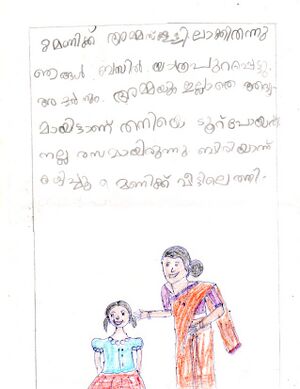 മണിക്ക് അമ്മ സ്കൂളിലാക്കിതന്നു
ഞങ്ങൾ ബസിൽ യാത്രപുറപ്പെട്ടു.
അച്ഛനും അമ്മയും ഇല്ലാതെ ആദ്യ
മായിട്ടാണ് തനിയെ ടൂറ്പോയത്
നല്ല രസമായിരുന്നു ബിരിയാണി
കഴിച്ചു മണിക്ക് വീട്ടിലെത്തി.